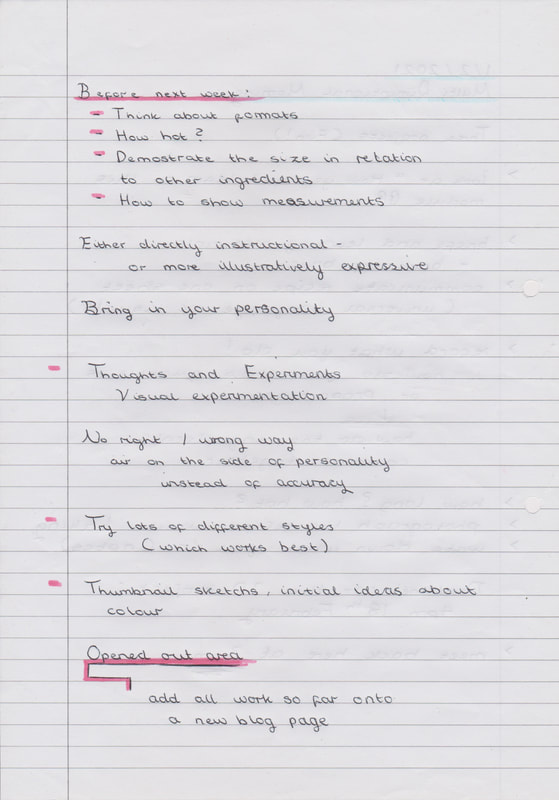 Before next week:
- Think about formats
- How hot?
- Demostrate the size in relation
to other ingredients
- How to show measurements
Either directly instructional -
or more illustratively expressive
Bring in your personality
- Thoughts and Experiments
Visual experimentation
No right / wrong way
air on the side of personality
instead of accuracy
- Try lots of different styles
(which works best)
- Thumbnail sketchs, initial ideas about
colour
Opened out area
add all work so far onto
a new blog page